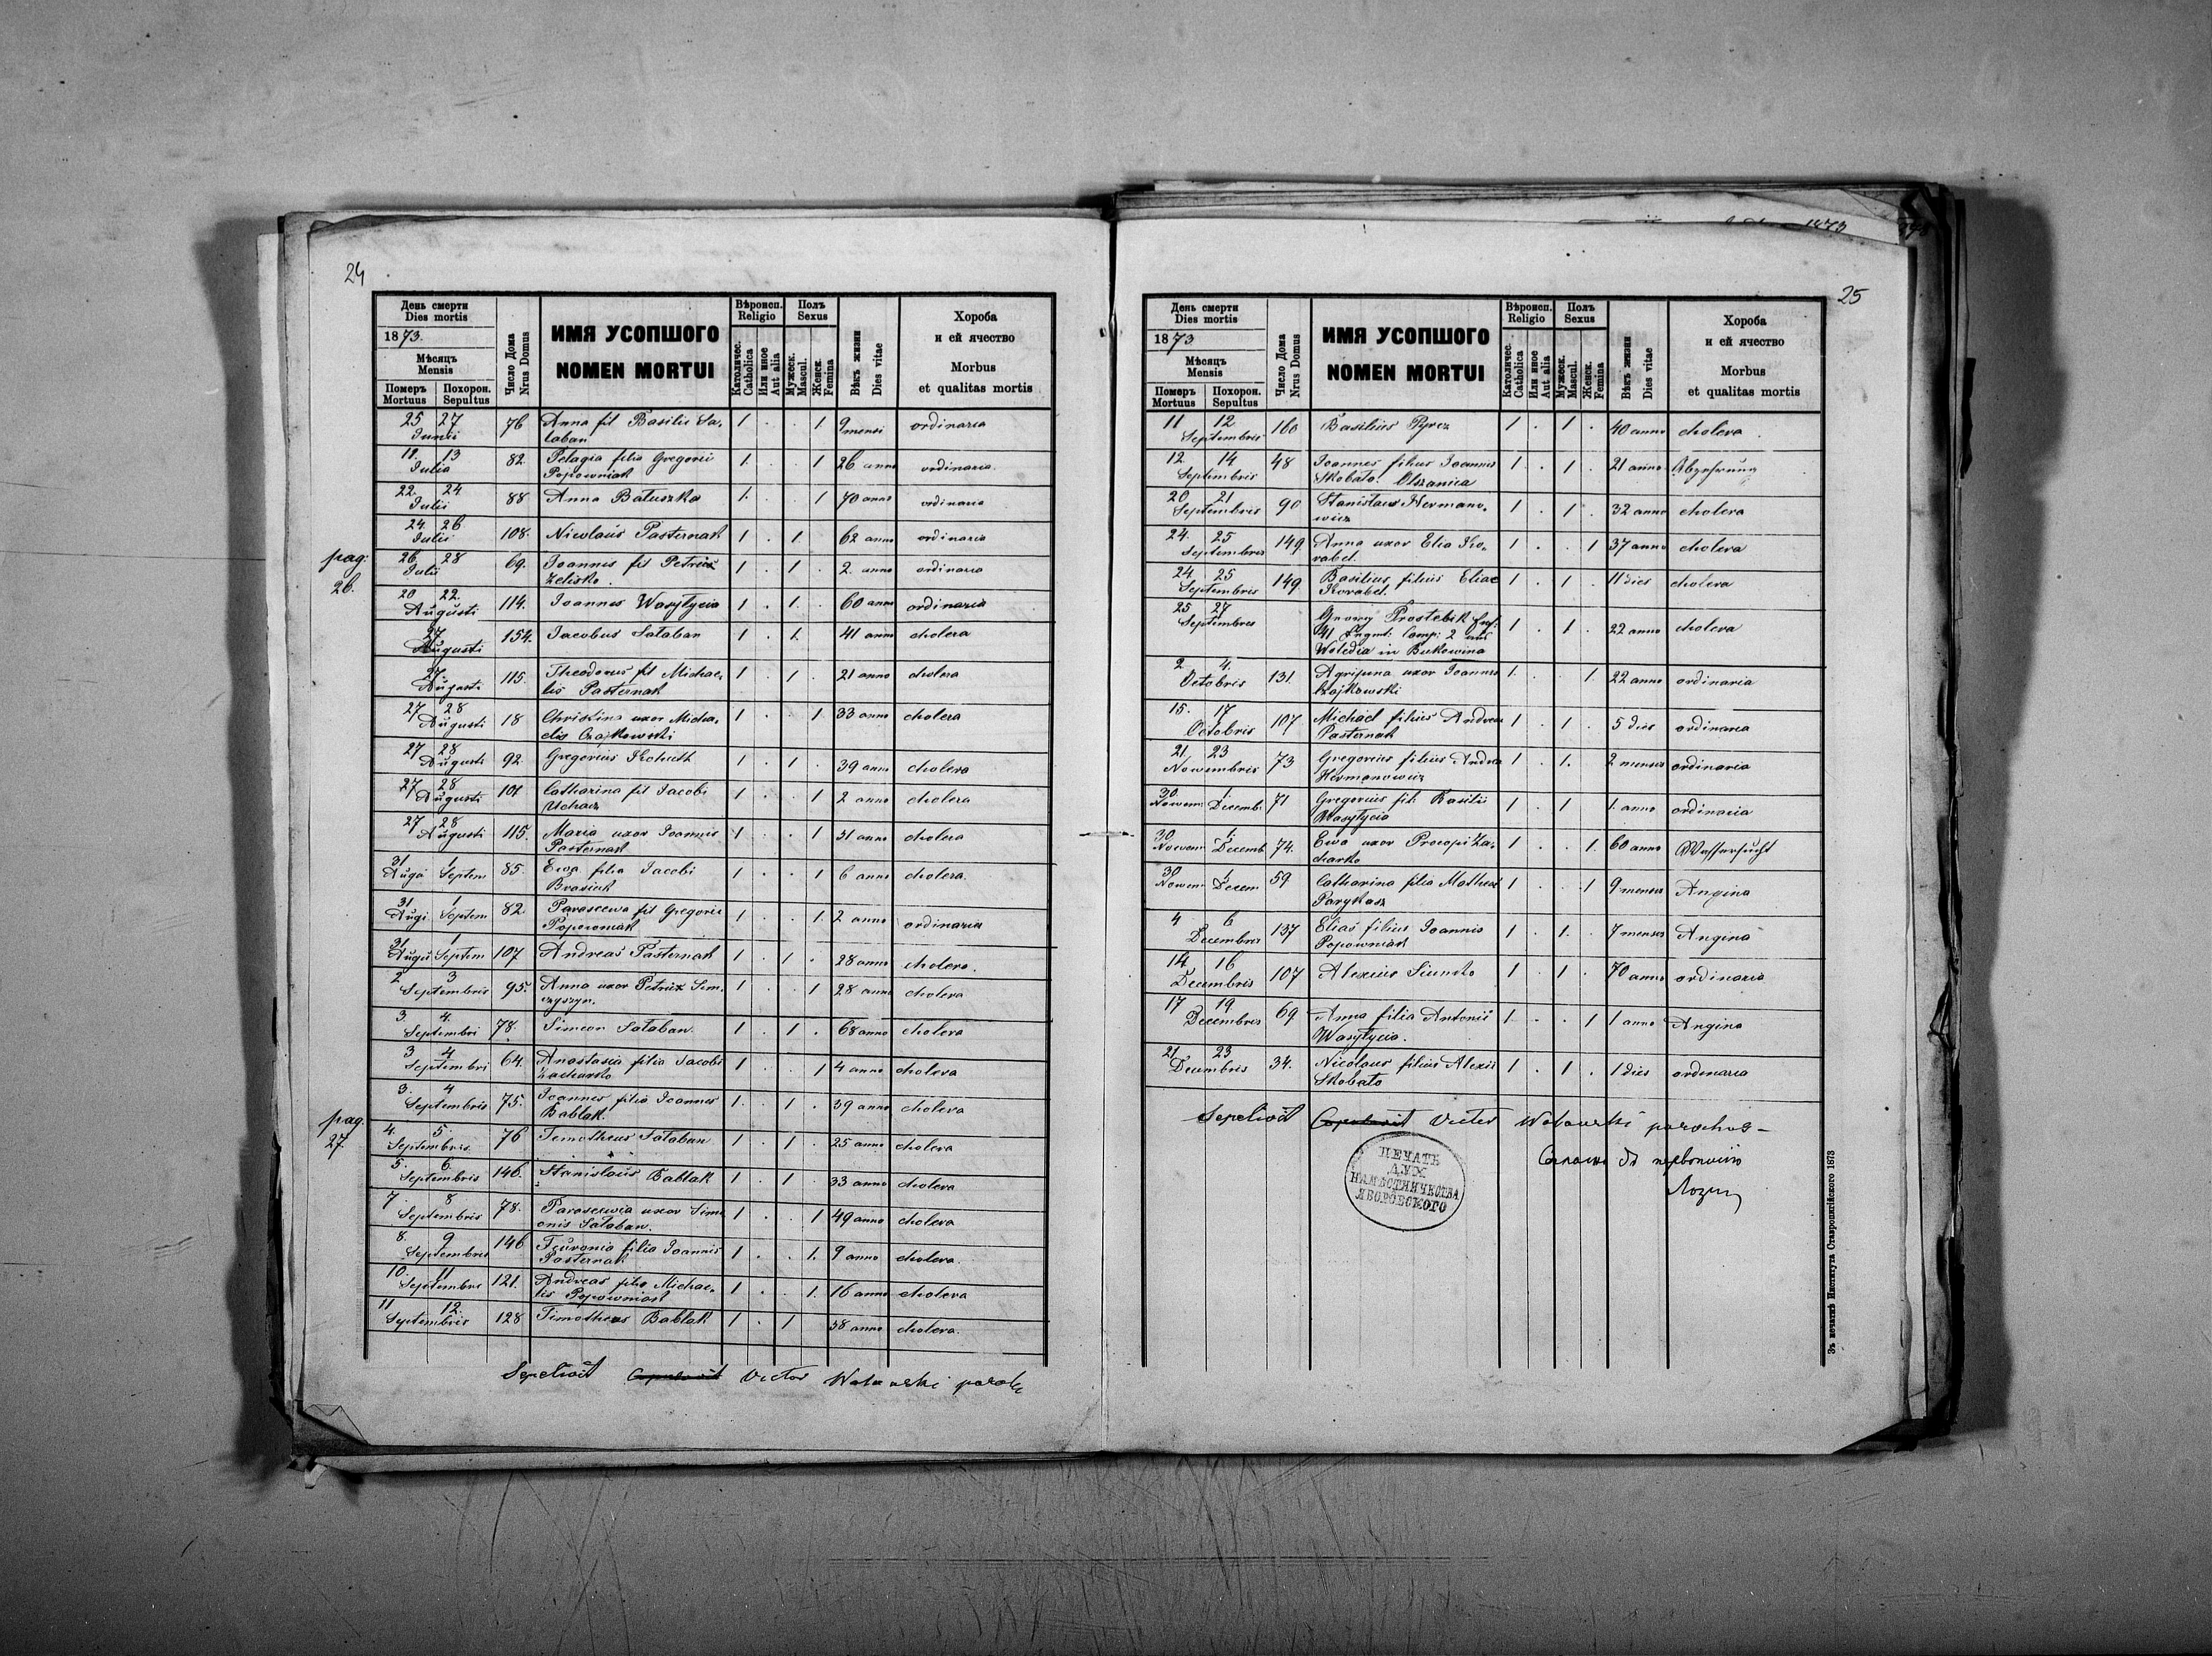 24
День смерти
Dies mortis
1873.
Мѣсяцъ
Mensis
Померъ Mortuus
Похорон. Sepultus
Число Дома
Nrus Domus
ИМЯ УСОПШОГО
NOMEN MORTUI
Вѣроисп.
Religio
Католичес. Catholica
Или иное Aut alia
Полъ
Sexus
Мужеск. Mascul.
Женск. Femina
Вѣкъ жизни
Dies vitae
Хороба
и ей ячество
Morbus
et qualitas mortis
25 27 Junii 76 Anna fil Basilii Sa, 1 . . 1 9 mensi ordinaria
laban
12. 13 Julia 82. Pelagia filia Gregorii 1. . . 1 26 anno ordinaria
Popowniak
22. 24 Julii 88 Anna Batuszka 1. . . 1 70 anno ordinaria
24. 26 Julii 108. Nicolaus Pasternak 1 . 1 62 anno ordinaria
pag:
26.
26. 28 Julii 69. Joannes fil Petri 1 . 1 . 2. anno ordinaria
Zelisko.
20 22. Augusti 114. Joannes Wasylycia 1 . 1. . 60 anno ordinaria
27 Augusti 154. Jacobus Sałaban 1 . 1. 41 anno cholera
27. Augusti 115. Theodorus fil Michae, 1 . 1 . 21 anno cholera
lis Pasternak
27 28 Augusti 18 Christina uxor Micha, 1 . . 1 33 anno cholera
elis Czajkowski
27 28 Augusti 92 Gregorius Kohutt 1 . 1 . 39 anno cholera
27 28 Augusti 101 Catharina fil Jacobi 1 . . 1 2 anno cholera
Uchacz
27 28 Augusti 115. Maria uxor Joannis 1 . . 1 31 anno cholera
Pasternak
31 Augu 1 Septem 85. Ewa filia Jacobi 1 . . 1 6 anno cholera.
Brasiuk
31 Augi 1 Septem 82. Parascewa fil Gregorii 1 . . 1. 2 anno ordinaria
Popowniak
31 Augu 1 Septem 107 Andreas Pasternak 1 . 1 . 28 anno cholera.
2 3 Septembris 95. Anna uxor Petrix Sem, 1 . . 1 28 anno cholera
czyszyn.
3. 4. Septembri 78. Simeon Sałaban 1 . 1 . 68 anno cholera
3 4 Septembri 64. Anastasia filia Jacobi 1 . . 1 4 anno cholera
Zacharko
3. 4 Septembris 75. Joannes filia Joannes 1. . 1 . 39 anno cholera
Bablak.
pag.
27.
4. 5. Septembris. 76 Timotheus Sałaban 1 . 1 . 25 anno cholera
5. 6. Septembris 146. Stanislaus Bablak 1 . 1 . 33 anno cholera
7 8 Septembris 78. Parascewia uxor Sime 1 . . 1 49 anno cholera
onis Sałaban.
8. 9 Septembris 146 filia Joannis 1 . . 1. 9 anno cholera.
Pasternak
10. 11 Septembris 121. Andreas filia Michae, 1 . . 1. 16 anno cholera
lis Popowniak
11 12. Septembris 128 Timotheus Bablak 1 . 1 38 anno cholera.
Sepelivit Victor
25
День смерти
Dies mortis
1873
Мѣсяцъ
Mensis
Померъ Mortuus
Похорон. Sepultus
Число Дома
Nrus Domus
ИМЯ УСОПШОГО
NOMEN MORTUI
Вѣроисп.
Religio
Католичес. Catholica
Или иное Aut alia
Полъ
Sexus
Мужеск. Mascul.
Женск. Femina
Вѣкъ жизни
Dies vitae
Хороба
и ей ячество
Morbus
et qualitas mortis
11 12 Septembris 160 Basilius Pyrcz 1 . 1 . 40 anno cholera
12. 14 Septembris 48 Joannes filius Joannis 1 . 1 . 21 anno Abzehrung
Skobało. Olszanica
20 21 Septembris 90 Stanislaus Hermano, 1 . 1 . 32 anno cholera
wicz
24. 25 Septembris 149. Anna uxor Elia Ko, 1 . . 1 37 anno cholera
rabel.
24. 25 Septembris 149 Basilius filius Eliae 1 . 1 . 11 dies cholera
Korabel.
25 27 Septembris Prostebik Inf: 1 . 1 . 22 anno cholera
41 Regmt: Comp: 2 aus
in Bukowina
2 4. Octobris 131. Agripina uxor Joannis 1. . . 1 22 anno ordinaria
Czajkowski
15. 17 Octobris 107 Michael filius Andreas 1 . 1 . 5 dies ordinaria
Pasternak
21. 23 Nowembris 73 Gregorius filius Andrea 1 . 1. 2 menses ordinaria
Hermanowicz
30. Nowem 1. Decemb. 71 Gregorius fil: Basilii 1 . 1 1. anno ordinaria
Wasylycia
30 Nowem 1. Decemb 74. Ewa uxor Procopi Za, 1 . . 1. 60 anno Wassersucht
charko
30 Nowem 1 Decem 59 Catharina filia Mathei 1 . . 1 9 menses Angina
4 6 Decembris 137 Elias filius Joannis 1 . 1. . 7 menses Angina
Popowniak
14 16 Decembris 107 Alexius Siunko 1 . 1 . 70 anno ordinaria
17 19 Decembris 69 Anna filia Antonii 1. . . 1 1 anno Angina
Wasylycia.
21 23 Decembris 34. Nicolaus filius Alexii 1 . 1 . 1 dies ordinaria
Skobało
Sepelivit Victor parochus
ПЕЧАТЬ
ДУХ.
НАМѢСТНИЧЕСТВА
ЯВОРОВСКОГО
Зъ печатнѣ Института Ставропигійского 1873
1873